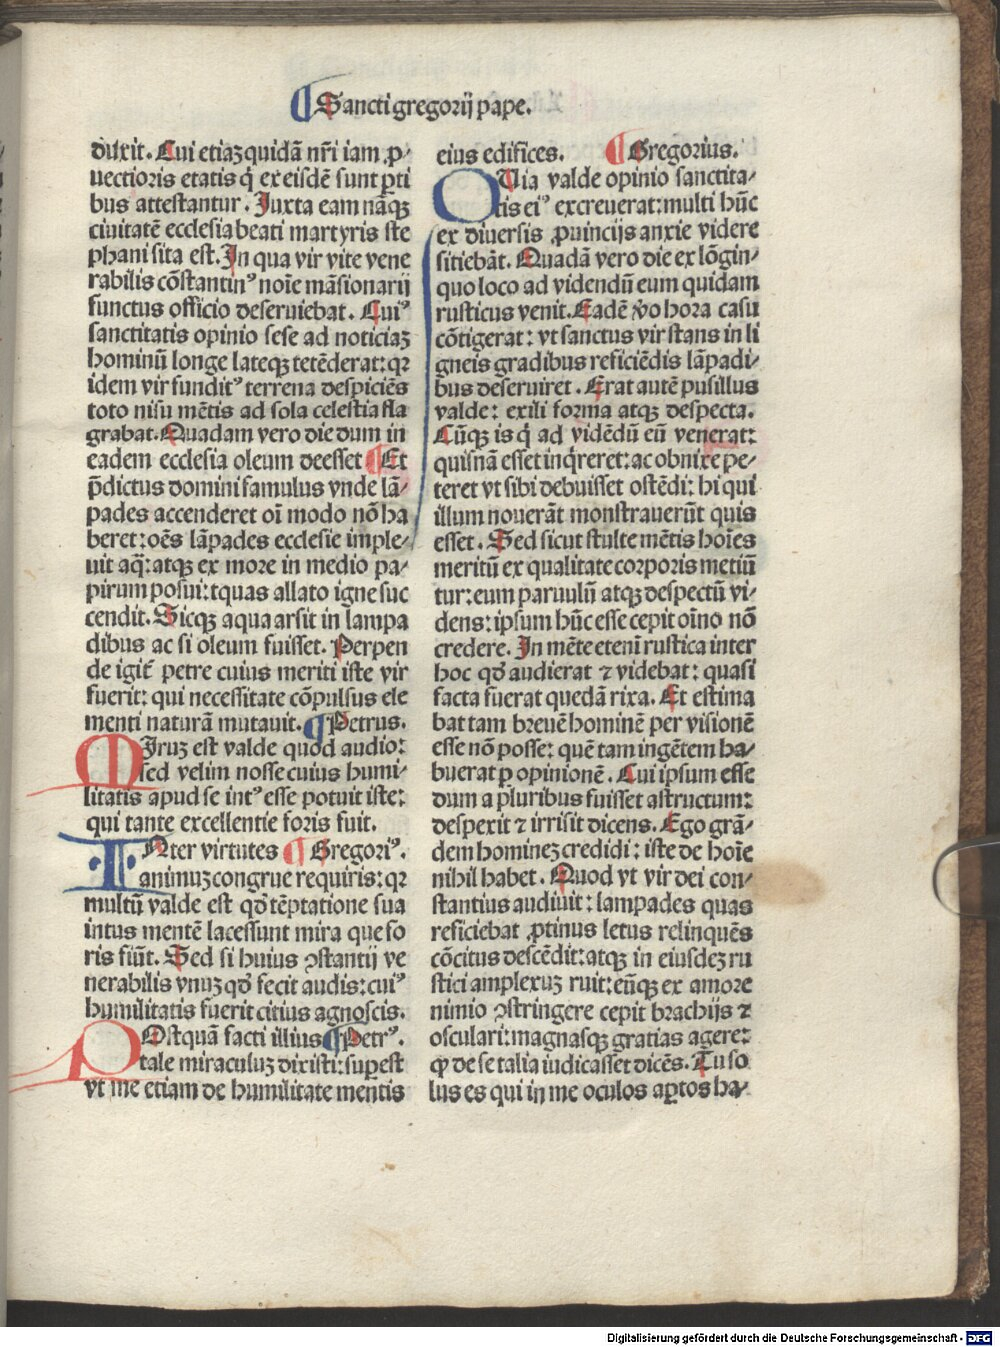 Sancti gregorij pape.
duxit. Cui etiaʒ quidā nr̄i iam ꝓ-
uectioris etatis q̇ ex eisdē sunt ꝑti
bus attestantur. Juxta eam nāqꝫ
ciuitatē ecclesia beati martyris ste
phani sita est. In qua vir vite vene
rabilis cōstantinꝰ noīe māsionarij
functus officio deseruiebat. Cuiꝰ
sanctitatis opinio sese ad noticiaʒ
hominū longe lateqꝫ tetēderat: qꝛ
idem vir funditꝰ terrena despiciēs
toto nisu mētis ad sola celestia fla
grabat. Quadam vero die dum in
eadem ecclesia oleum deesset Et
p̄dictus domini famulus vnde lā-
pades accenderet oī modo nō ha
beret: oēs lāpades ecclesie imple-
uit aq̄: atqꝫ ex more in medio pa-
pirum posuit: quas allato igne suc
cendit. Sicqꝫ aqua arsit in lampa
dibus ac si oleum fuisset. Perpen
de igit̄ petre cuius meriti iste vir
fuerit: qui necessitate cōpulsus ele
menti naturā mutauit. Petrus.
MIruʒ est valde quod audio:
sed velim nosse cuius humi-
litatis apud se intꝰ esse potuit iste:
qui tante excellentie foris fuit.
INter virtutes Gregoriꝰ.
animuʒ congrue requiris: qꝛ
multū valde est qd̄ tēptatione sua
intus mentē lacessunt mira que fo
ris fiūt. Sed si huius ꝯstantij ve
nerabilis vnuʒ qd̄ fecit audis: cuiꝰ
humilitatis fuerit citius agnoscis.
POstquā facti illius Petrꝰ.
tale miraculuʒ dixisti: suꝑest
vt me etiam de humilitate mentis
eius edifices. Gregorius.
QUia valde opinio sanctita-
tis eiꝰ excreuerat: multi hūc
ex diuersis ꝓuincijs anxie videre
sitiebāt. Quadā vero die ex lōgin-
quo loco ad videndū eum quidam
rusticus venit. Eadē v̊o hora casu
cōtigerat: vt sanctus vir stans in li
gneis gradibus reficiēdis lāpadi-
bus deseruiret. Erat autē pusillus
valde: exili forma atqꝫ despecta.
Cūqꝫ is q̇ ad vidēdū eū venerat:
quisnā esset inq̇reret: ac obnixe pe-
teret vt sibi debuisset ostēdi: hi qui
illum nouerāt monstrauerūt quis
esset. Sed sicut stulte mētis hoīes
meritū ex qualitate corporis metiū
tur: eum paruulū atqꝫ despectū vi-
dens: ipsum hūc esse cepit oīno nō
credere. In mēte etenī rustica inter
hoc qd̄ audierat ⁊ videbat: quasi
facta fuerat quedā rixa. Et estima
bat tam breuē hominē per visionē
esse nō posse: quē tam ingētem ha-
buerat ꝑ opinionē. Cui ipsum esse
dum a pluribus fuisset astructum:
despexit ⁊ irrisit dicens. Ego grā-
dem homineʒ credidi: iste de hoīe
nihil habet. Quod vt vir dei con-
stantius audiuit: lampades quas
reficiebat ꝓtinus letus relinquēs
cōcitus descēdit: atqꝫ in eiusdeʒ ru
stici amplexuʒ ruit: eūqꝫ ex amore
nimio ꝯstringere cepit brachijs ⁊
osculari: magnasqꝫ gratias agere:
ꝙ de se talia iudicasset dicēs. Tu so
lus es qui in me oculos aꝑtos ha-
Digitalisierung gefördert durch die Deutsche Forschungsgemeinschaft - DFG